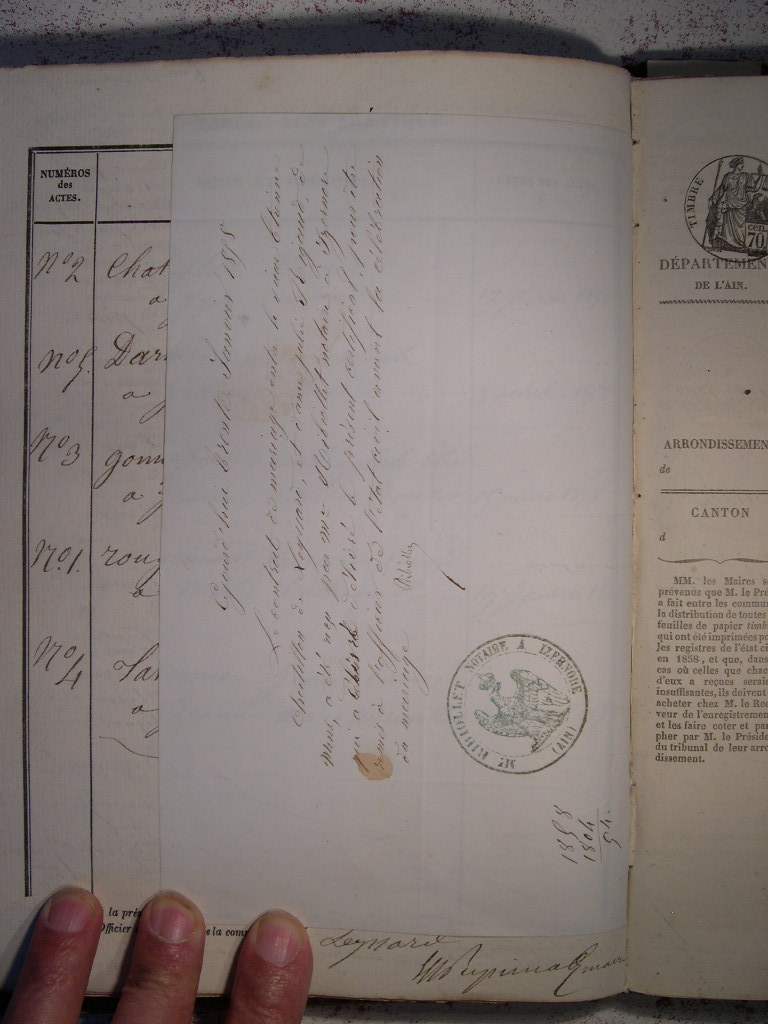 NUMÉROS
des
ACTES.
No 2 Chat
a
No 5. Dar
a
No 3 gonn
a
No 1. roug
a
No 4
a
Aujourd'hui trente Janvier 1858
Le contrat de mariage entre le sieur Etienne
Chatillon de Leynard, et dame julie
a été reçu par me Ribiollet notaire à Izernore
qui a délivré le présent certificat pour être
remis à l'officier de l'Etat civil avant la célébration
du mariage
Ribiollet
Mt RIBIOLLET NOTAIRE A IZERNORE (AIN)
1858
1804
54.
la pré
Officier
e la com
Leynard
TIMBRE
CEN.
70
DÉPARTEMEN
DE L'AIN.
ARRONDISSEMEN
de
CANTON
d
MM. les Maires so
prévenus que M. le Pré
a fait entre les commun
la distribution de toutes
feuilles de papier timb
qui ont été imprimées po
les registres de l'état ci
en 1858, et que, dans
cas où celles que chac
d'eux a reçues seraie
insuffisantes, ils doivent
acheter chez M. le Rec
veur de l'enregistremen
et les faire coter et par
pher par M. le Préside
du tribunal de leur arro
dissement.